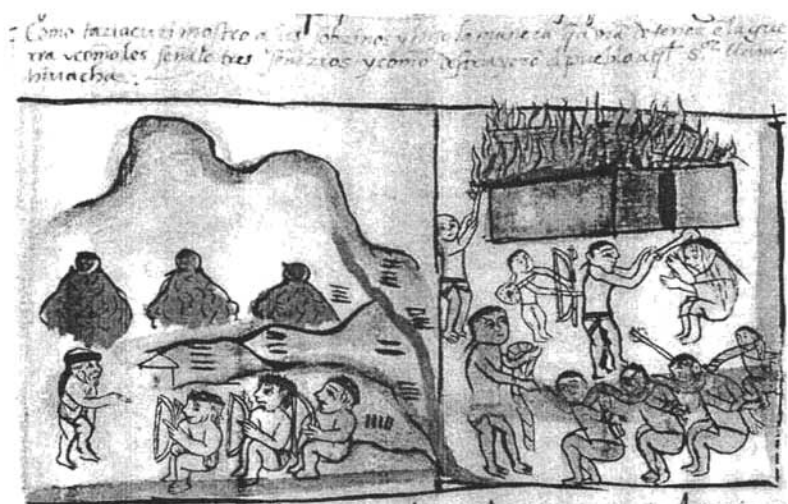 Como taziacuri mostro a sobrinos y la manera q avia de tener e la gue
rra y como les señalo tres señorios y como el pueblo sor llama
hivacha